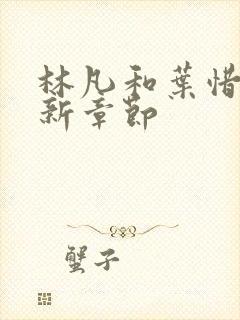 林凡和葉惜
新章節
蟹子